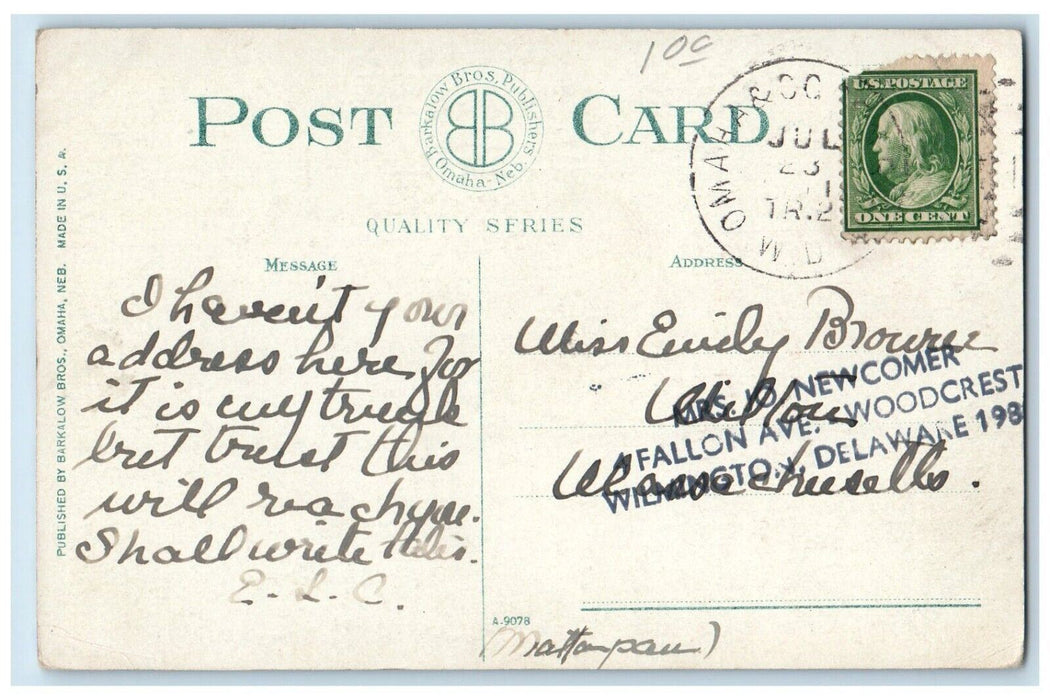 10c
POST CARD
Barkalow Bros. Publishers
BB
Omaha-Neb.
QUALITY SERIES
OMAHA & OG
JUL
23
11
TR.2
W.D
U.S. POSTAGE
ONE CENT
MESSAGE
ADDRESS
PUBLISHED BY BARKALOW BROS., OMAHA, NEB. MADE IN U. S. A.
I haven't your
address here for
it is in my trunk
but trust this
will reach you.
Shall write this.
E. L. C.
Miss Emily Browne
Milton
Massachusetts.
MRS. NEWCOMER
FALLON AVE. WOODCREST
WILMINGTON, DELAWARE 198
A-9078
(Mattapan)